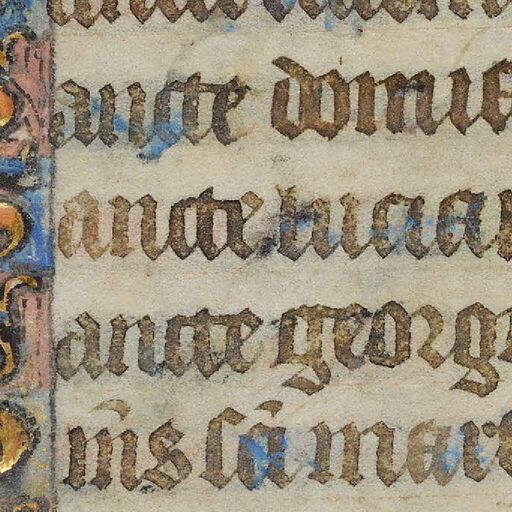 ancte domi
ancte lucian
ancte georgi
ms̄ scā mar